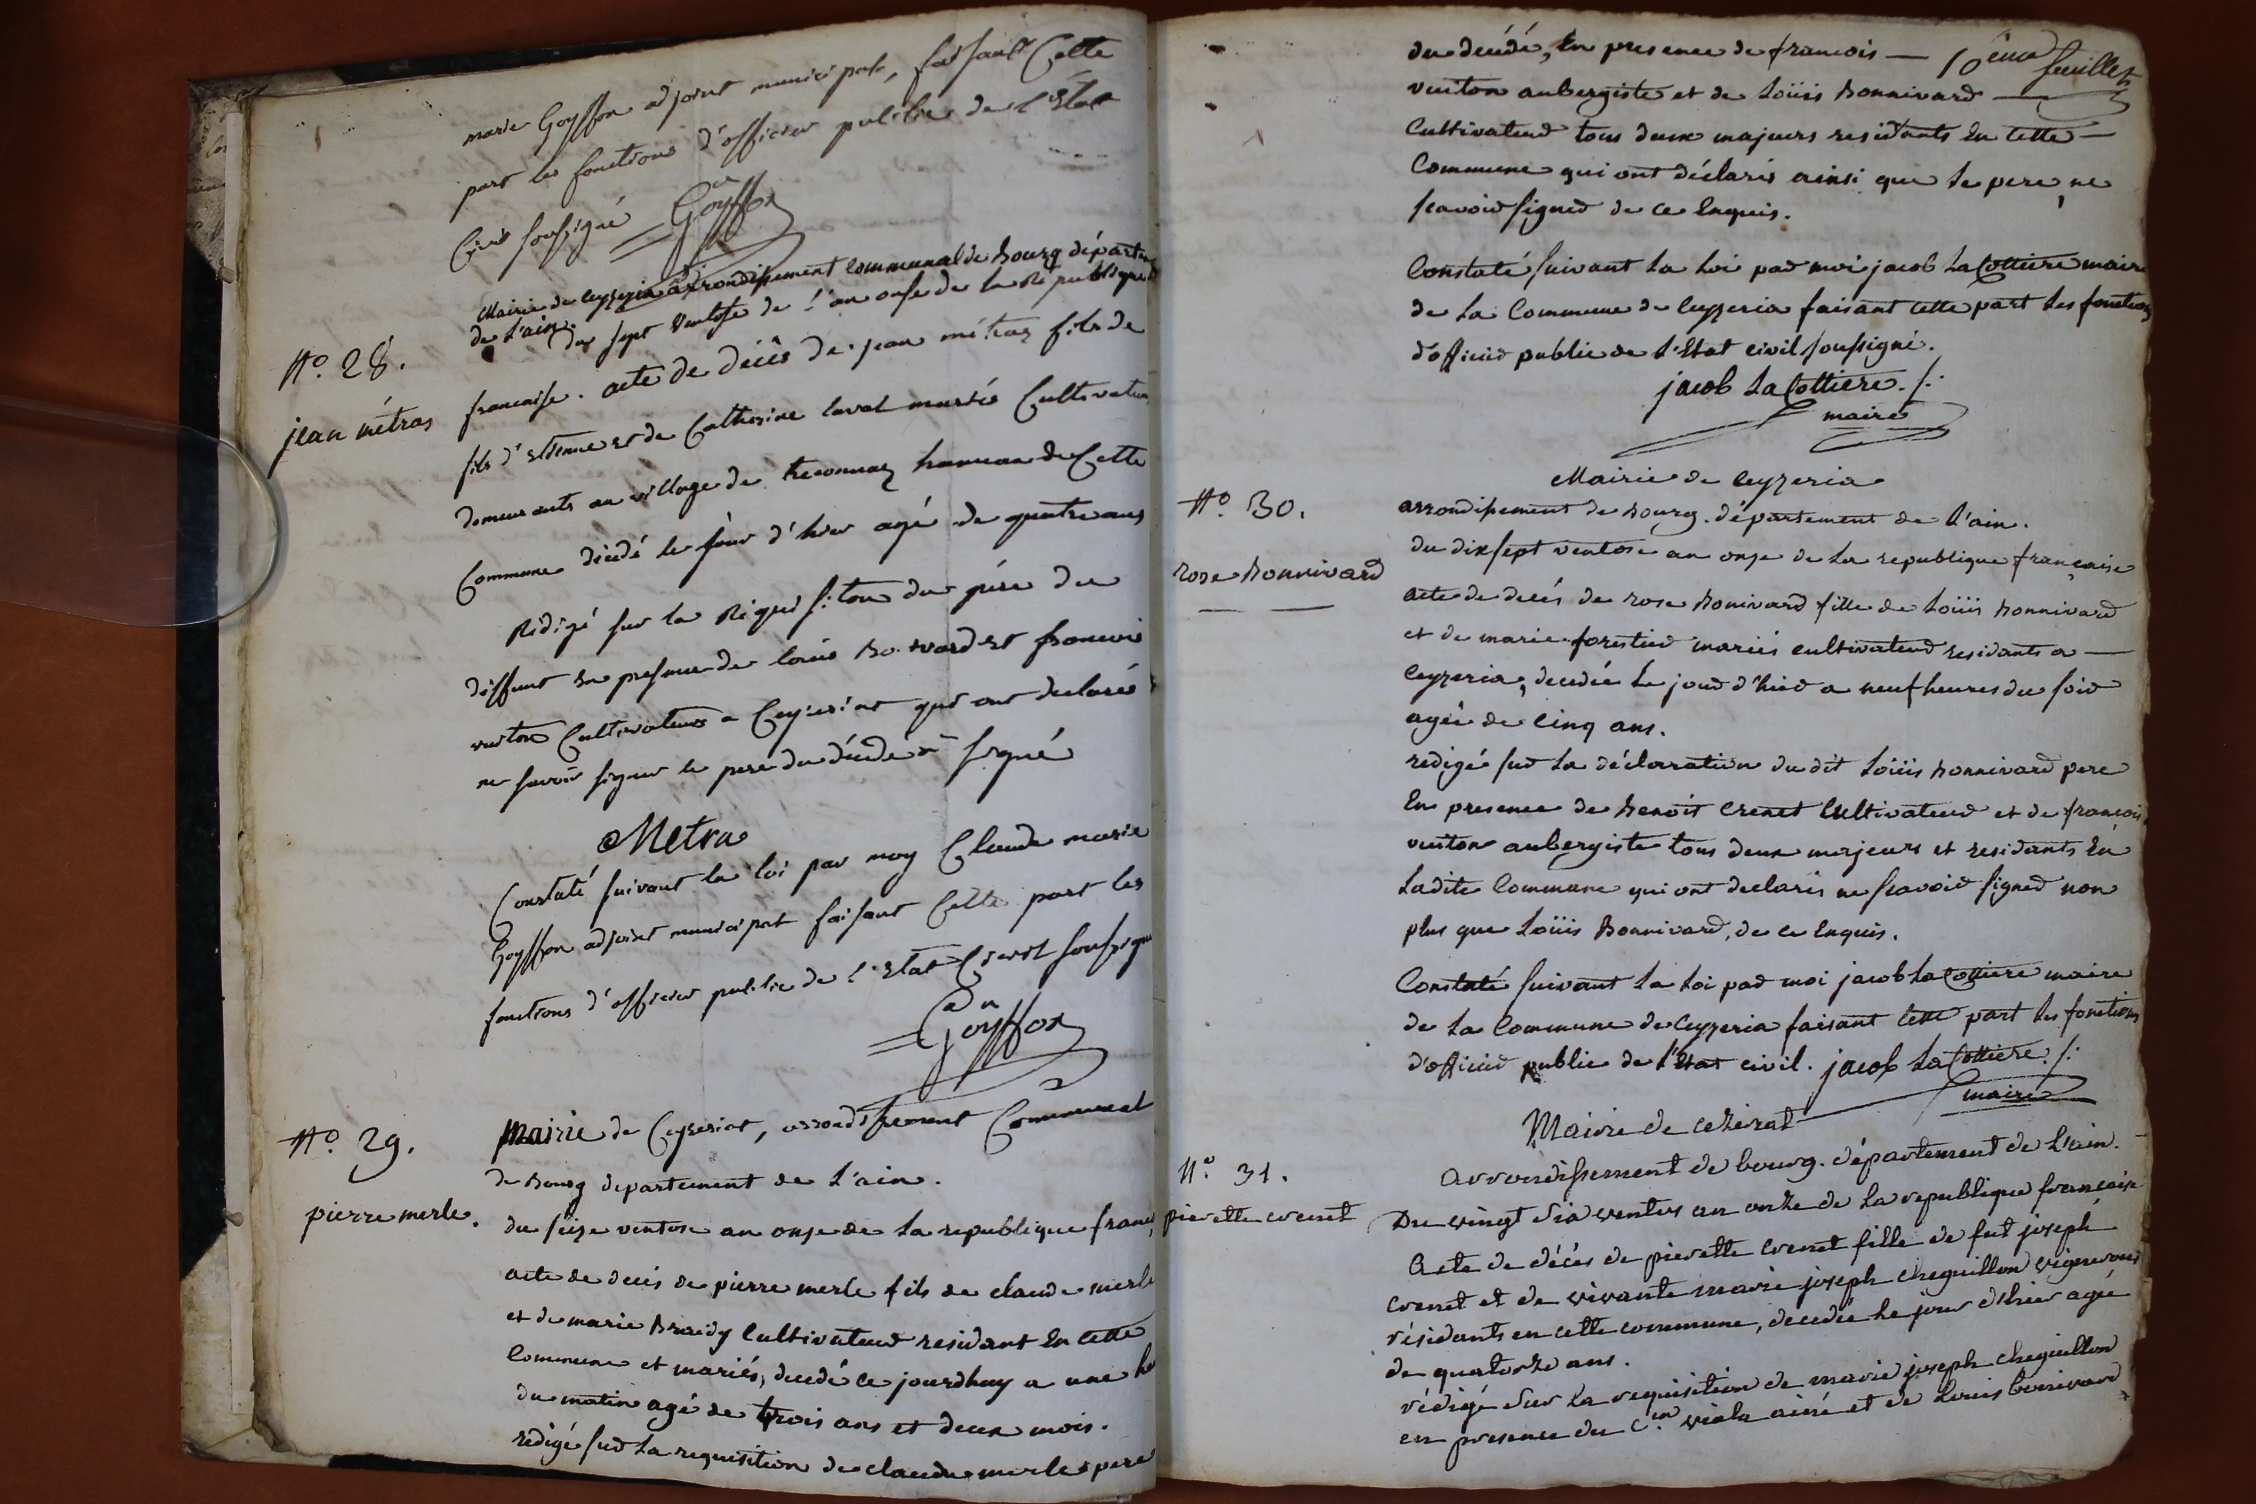 marie Goyffon adjoint municipal, faisant Cette
part les fonctions d'officier public de l'Etat
Civil soussigné Goyffon
Mairie de Ceyzeria arrondissement Communal de Bourg départem
de L'ain.
du sept Ventose de l'an onse de la Republique
N.º 28.
jean métras
francaise. acte de décès de jean métras fils de
fils d'Etienne et de Catherine laval mariés Cultivateurs
demeurants au village de treconnaz hameau de Cette
Commune décédé le jour d'hier agé de quatre ans
Rédigé sur la Réquisition du père du
deffunt en presence de louis et francois
vuiton Cultivateurs a Ceyseriat qui ont declarés
ne savoir signer le pere du décédé a signé
Metra
Constaté suivant la loi par moy Claude marie
Goyffon adjoint municipal faisant Cette part les
fonctions d'officier public de l'Etat Civil soussigné
Goyffon
N.º 29.
pierre merle.
Mairie de Ceyseriat, arrondissement Communal
de Bourg departement de L'ain.
du seize ventose an onze de la republique franc
acte de decés de pierre merle fils de claude merle
et de marie Braidy Cultivateur residant En cette
Commune et mariés, decedé ce jourdhuy a une he
du matin agé de trois ans et deux mois.
redigé sur La requisition de claude merle pere
10ème feuillet
du decédé, En presence de francois —
vuiton aubergiste et de Loüis Bonnivard
Cultivateur tous deux majeurs residants En cette —
Commune qui ont déclarés ainsi que le pere, ne
scavoir signer de ce Enquis.
Constaté suivant La Loi par moi jacob La Cottiere maire
de La Commune de Ceyzeria faisant cette part Les fonctions
d'officier public de L'Etat civil soussigné.
jacob La Cottiere.
maire
N.º 30.
rose Bonnivard
Mairie de Ceyzeria
arrondissement de Bourg. département de L'ain.
du dix sept ventose an onze de La republique française
acte de decés de rose Bonivard fille de Loüis Bonnivard
et de marie forestier mariés cultivateur residants a —
Ceyzeria, decedée Le jour d'hier a neuf heures du soir
agée de Cinq ans.
redigé sur La déclaration du dit Loüis Bonnivard pere
En presence de Benoit Crenet Cultivateur et de francois
vuiton aubergiste tous deux majeurs et residants En
Ladite Commune qui ont declarés ne scavoir signer non
plus que Loüis Bonnivard, de ce Enquis.
Constaté suivant La Loi par moi jacob La Cottiere maire
de La Commune de Ceyzeria faisant cette part Les fonctions
d'officier public de L'Etat civil. jacob La Cottiere.
maire
N.º 31.
pierette crenet
Mairie de cezeriat
arrondissement de bourg. département de L'ain.
Du vingt six ventos an onze de La republique française
Acte de décés de pierette crenet fille de fut joseph
crenet et de vivante marie joseph cheguillon vigneronne
résidants en cette commune, decedée Le jour d'hier agée
de quatorze ans.
rédigé sur La requisition de marie joseph cheguillon
en presence du C.en viala ainé et de Louis bonivard